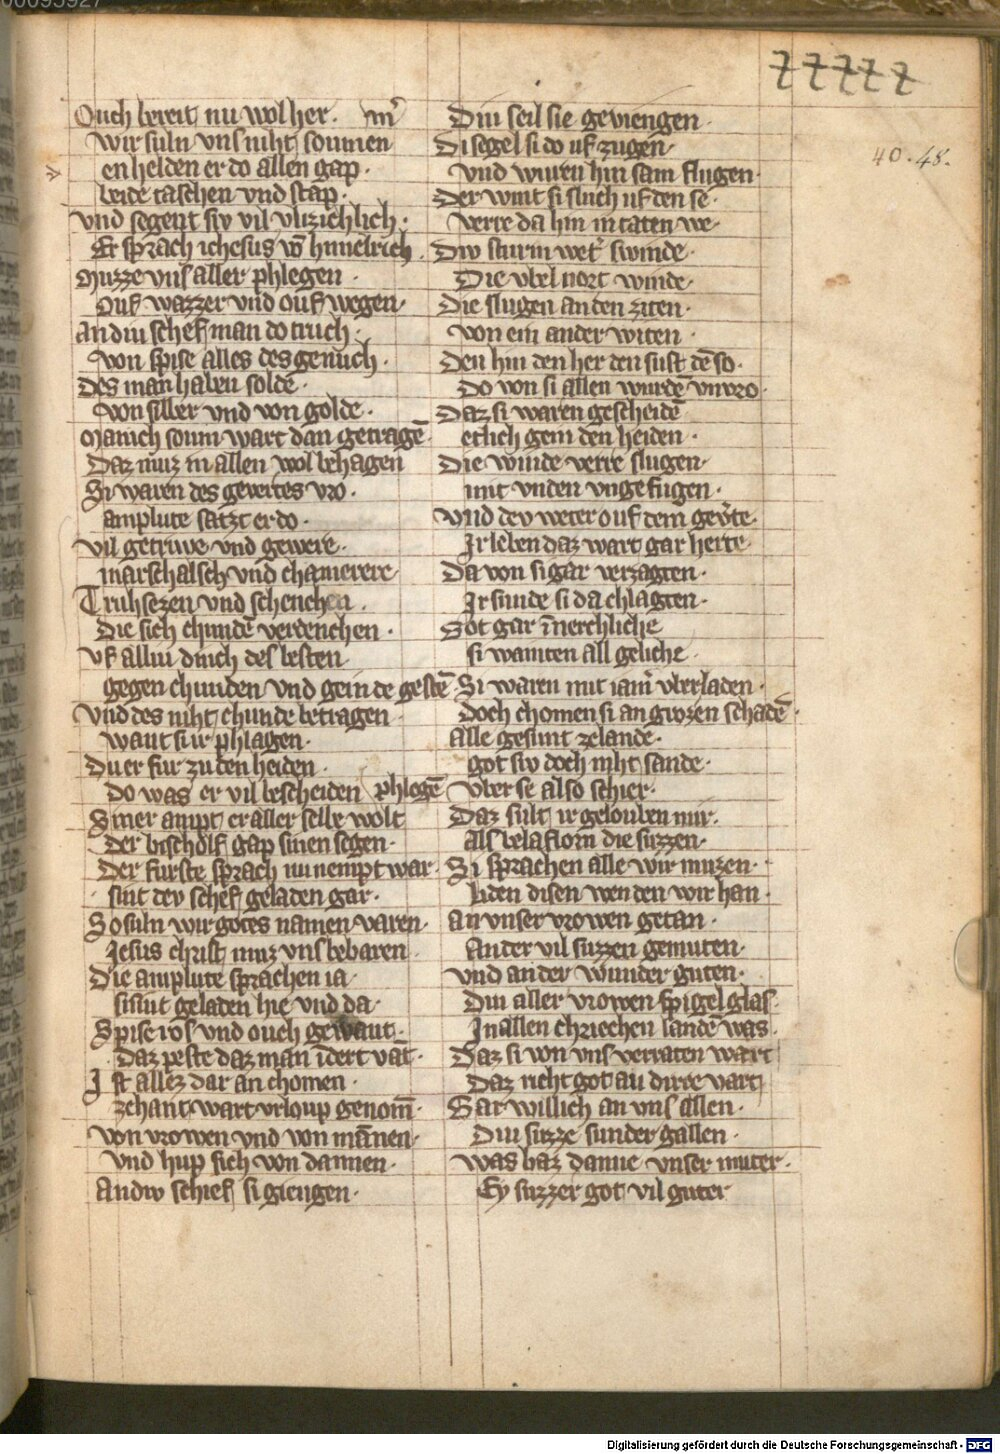 00095927
77777
40.48.
Ouch bereit nu wol her. mͬ
wir suln vns niht soumen
en helden er do allen gap.
beide taschen vnd stap.
vnd segent siv vil vlizichlich.
Er sprach ihesus vō himelrich.
Muzze vns aller phlegen.
ouf wazzer vnd ouf wegen.
an diu schef man do truch.
von spise alles des genuch.
Des man haben solde.
von silber vnd von golde.
Manich soum wart dan getragē
Daz muz in allen wol behagen
Si waren des gevertes vro.
amplute satzt er do.
vil getriwe vnd gewere.
marschalsch vnd chamerere
Truhsezen vnd schenchen.
Die sich chundē verdenchen.
vf alliu dinch des besten
gegen chunden vnd gein de gestē
vnd des niht chunde betragen
want si ir phlagen.
Du er fur zu den heiden.
do was er vil bescheiden phlegē
Siner ampt er aller selbe wolt
der bischolf gap sinen segen.
Der furste sprach nu nempt war.
sint dev schef geladen gar.
So suln wir gotes namen varen.
Jesus christ muz vns bebaren
Die amplute sprachen ia
si sint geladen hie vnd da.
Spise ros vnd ouch gewant.
Daz peste daz man idert vāt.
Ist allez dar an chomen.
zehant wart vrloup genom̄.
von vrowen vnd von mānen.
vnd hup sich von dannen.
An div schief si giengen.
Diu seil sie geviengen.
Di segel si do uf zugen.
vnd wuren hin sam flugen.
Der wint si sluch uf den se.
verre da hin in taten we.
Div sturm wetͬ swinde.
Die vbel nort winde.
Die slugen an den ziten.
von ein ander witen.
Den hin den her den sust dē so.
Do von si allen wurdē vnvro.
Daz si waren gescheidē
etlich gein den heiden.
Die winde verre slugen.
mit vnden vngefugen.
vnd dev weter ouf dem gevͤrte.
Ir leben daz wart gar herte.
Da von si gar verzagten.
Ir sunde si da chlagten.
Got gar īnerchliche
si wainten all geliche.
Si waren mit iamͬ vberladen.
doch chomen si an grozen schadē.
Alle gesunt ze lande.
got siv doch niht sande.
vber se also schier.
Daz sult ir gelouben mir.
Als belaflorn die suzzen.
Si sprachen alle wir muzen.
liden disen wenden wir han.
an vnser vrowen getan.
An der vil suzzen gemuten.
vnd an der wunder guten.
Diu aller vrowen spigel glas.
In allen chriechen landē was.
Daz si von vns verraten wart
Daz richt got an dirre vart
Gar willich an vns allen.
Diu suzze sunder gallen.
was baz danne vnser muter.
Ey suzzer got vil guter
Digitalisierung gefördert durch die Deutsche Forschungsgemeinschaft - DFG